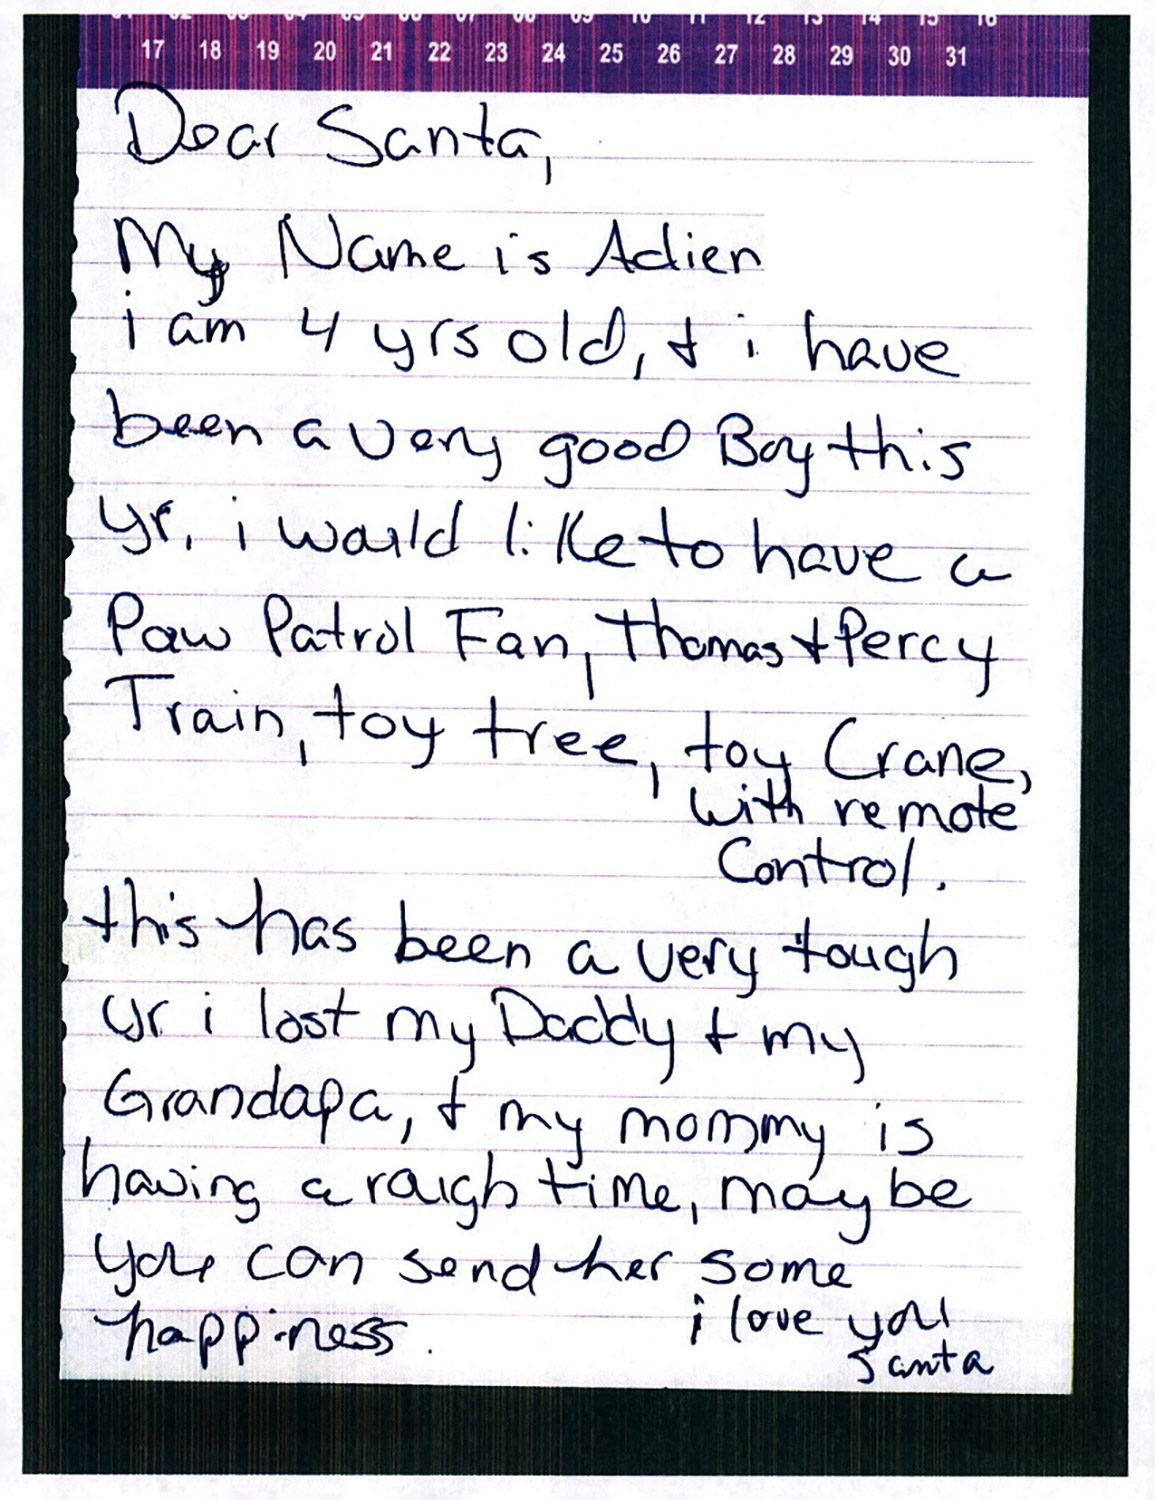 01 02 03 04 05 06 07 08 09 10 11 12 13 14 15 16
17 18 19 20 21 22 23 24 25 26 27 28 29 30 31
Dear Santa,
My Name is Adien
i am 4 yrs old, & i have
been a very good Boy this
yr. i would like to have a
Paw Patrol Fan, Thomas & Percy
Train, toy tree, toy Crane,
with remote
Control.
this has been a very tough
yr i lost my Daddy & my
Grandapa, & my mommy is
having a rough time, maybe
you can send her some
happiness.
i love you
Santa